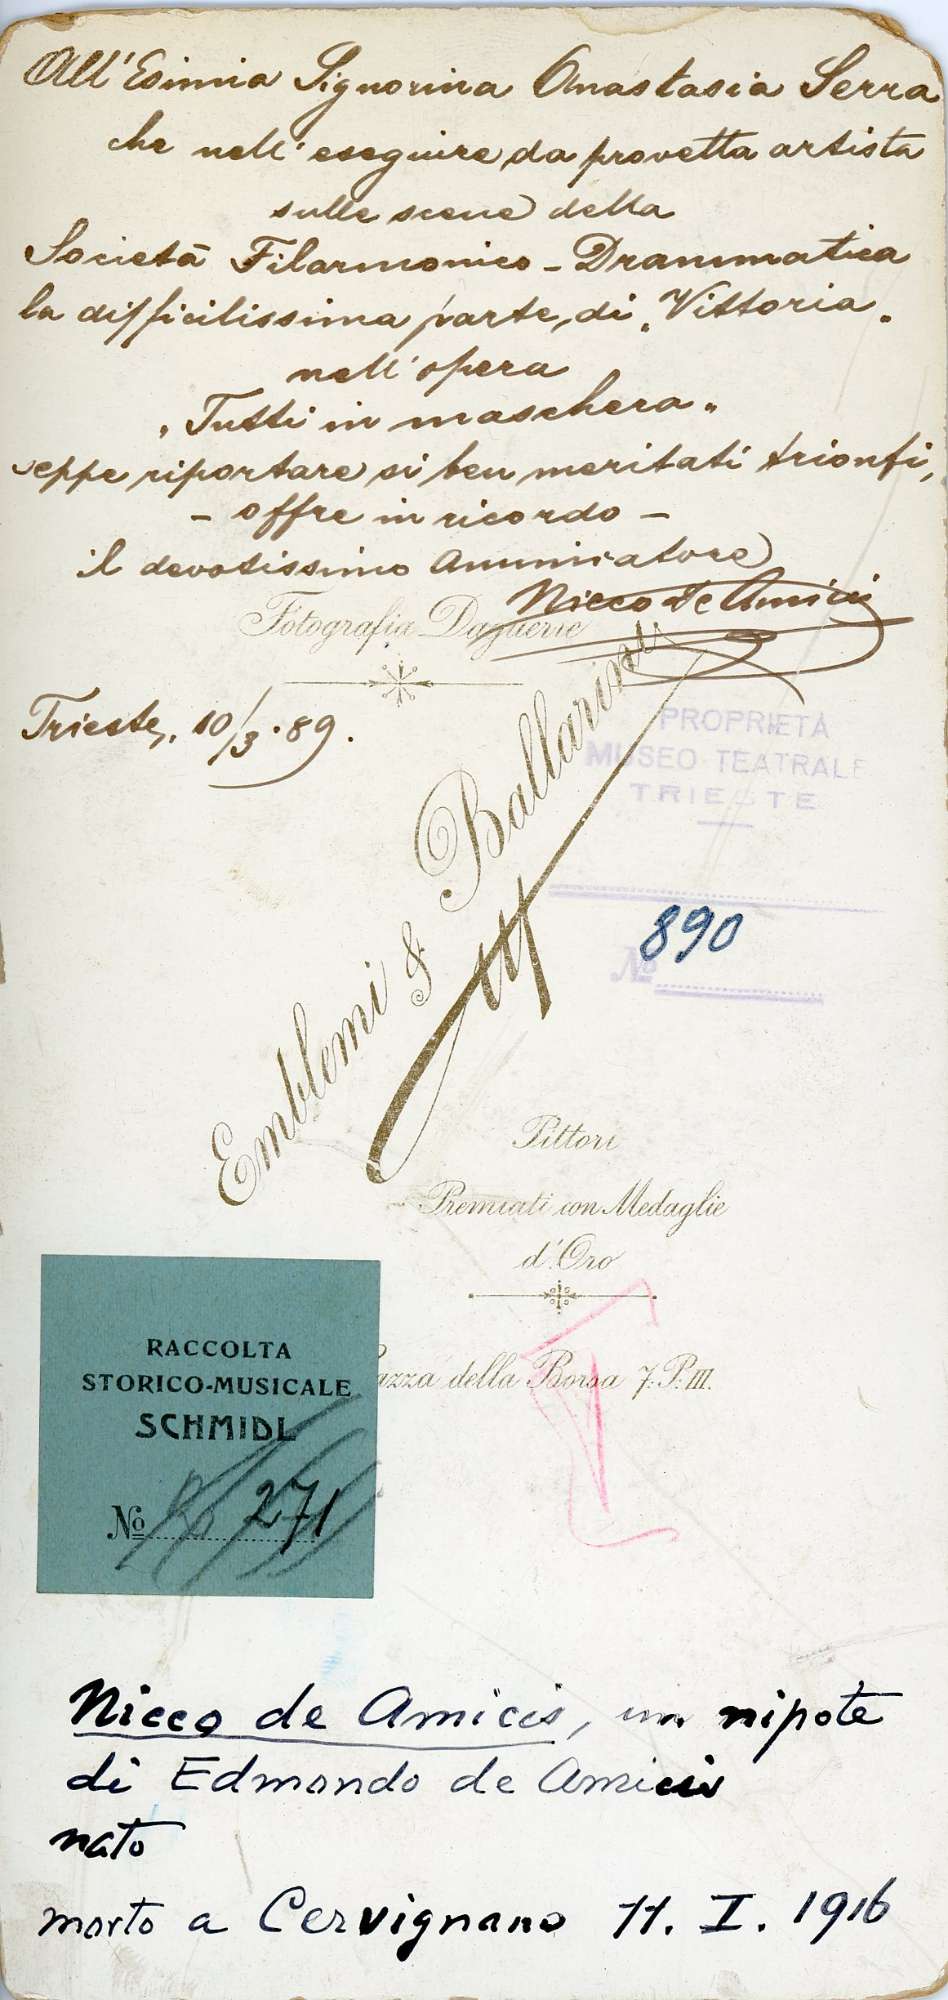 All'Esimia Signorina Anastasia Serra
che nell'eseguire da provetta artista
sulle scene della
Società Filarmonico - Drammatica
la difficilissima parte di "Vittoria"
nell'opera
"Tutti in maschera"
seppe riportare sì ben meritati trionfi,
- offre in ricordo -
il devotissimo Ammiratore
Nicco de Amicis
Fotografia Daguerre
Trieste, 10/3.89.
PROPRIETÀ
MUSEO TEATRALE
TRIESTE
№ 890
Emblemi & Ballarini
Pittori
Premiati con Medaglie
d'Oro
azza della Borsa 7. P. III.
RACCOLTA
STORICO-MUSICALE
SCHMIDL
№ 271
Nicco de Amicis, un nipote
di Edmondo de Amicis
nato
morto a Cervignano 11. I. 1916